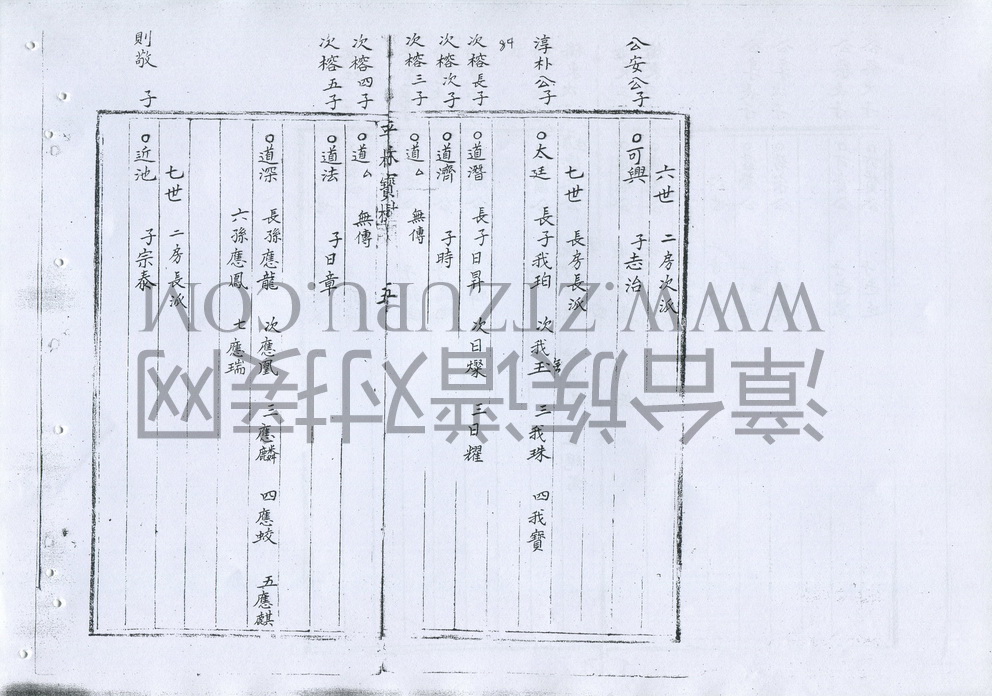 公安公子
六世 二房次派
可興 子志治
七世 長房長派
淳朴公子
太廷 長子我珀 次我玉 三我珠 四我寶
84
次榕長子
道潛 長子日昇 次日燦 三日耀
次榕次子
道濟 子時
次榕三子
道厶 無傳
寶樹 五
次榕四子
道厶 無傳
次榕五子
道法 子日章
道深 長孫應龍 次應凰 三應麟 四應蛟 五應麒
六孫應鳳 七應瑞
七世 二房長派
則敬 子
近池 子宗泰
WWW.ZTZUPU.COM
漳台族谱对接网